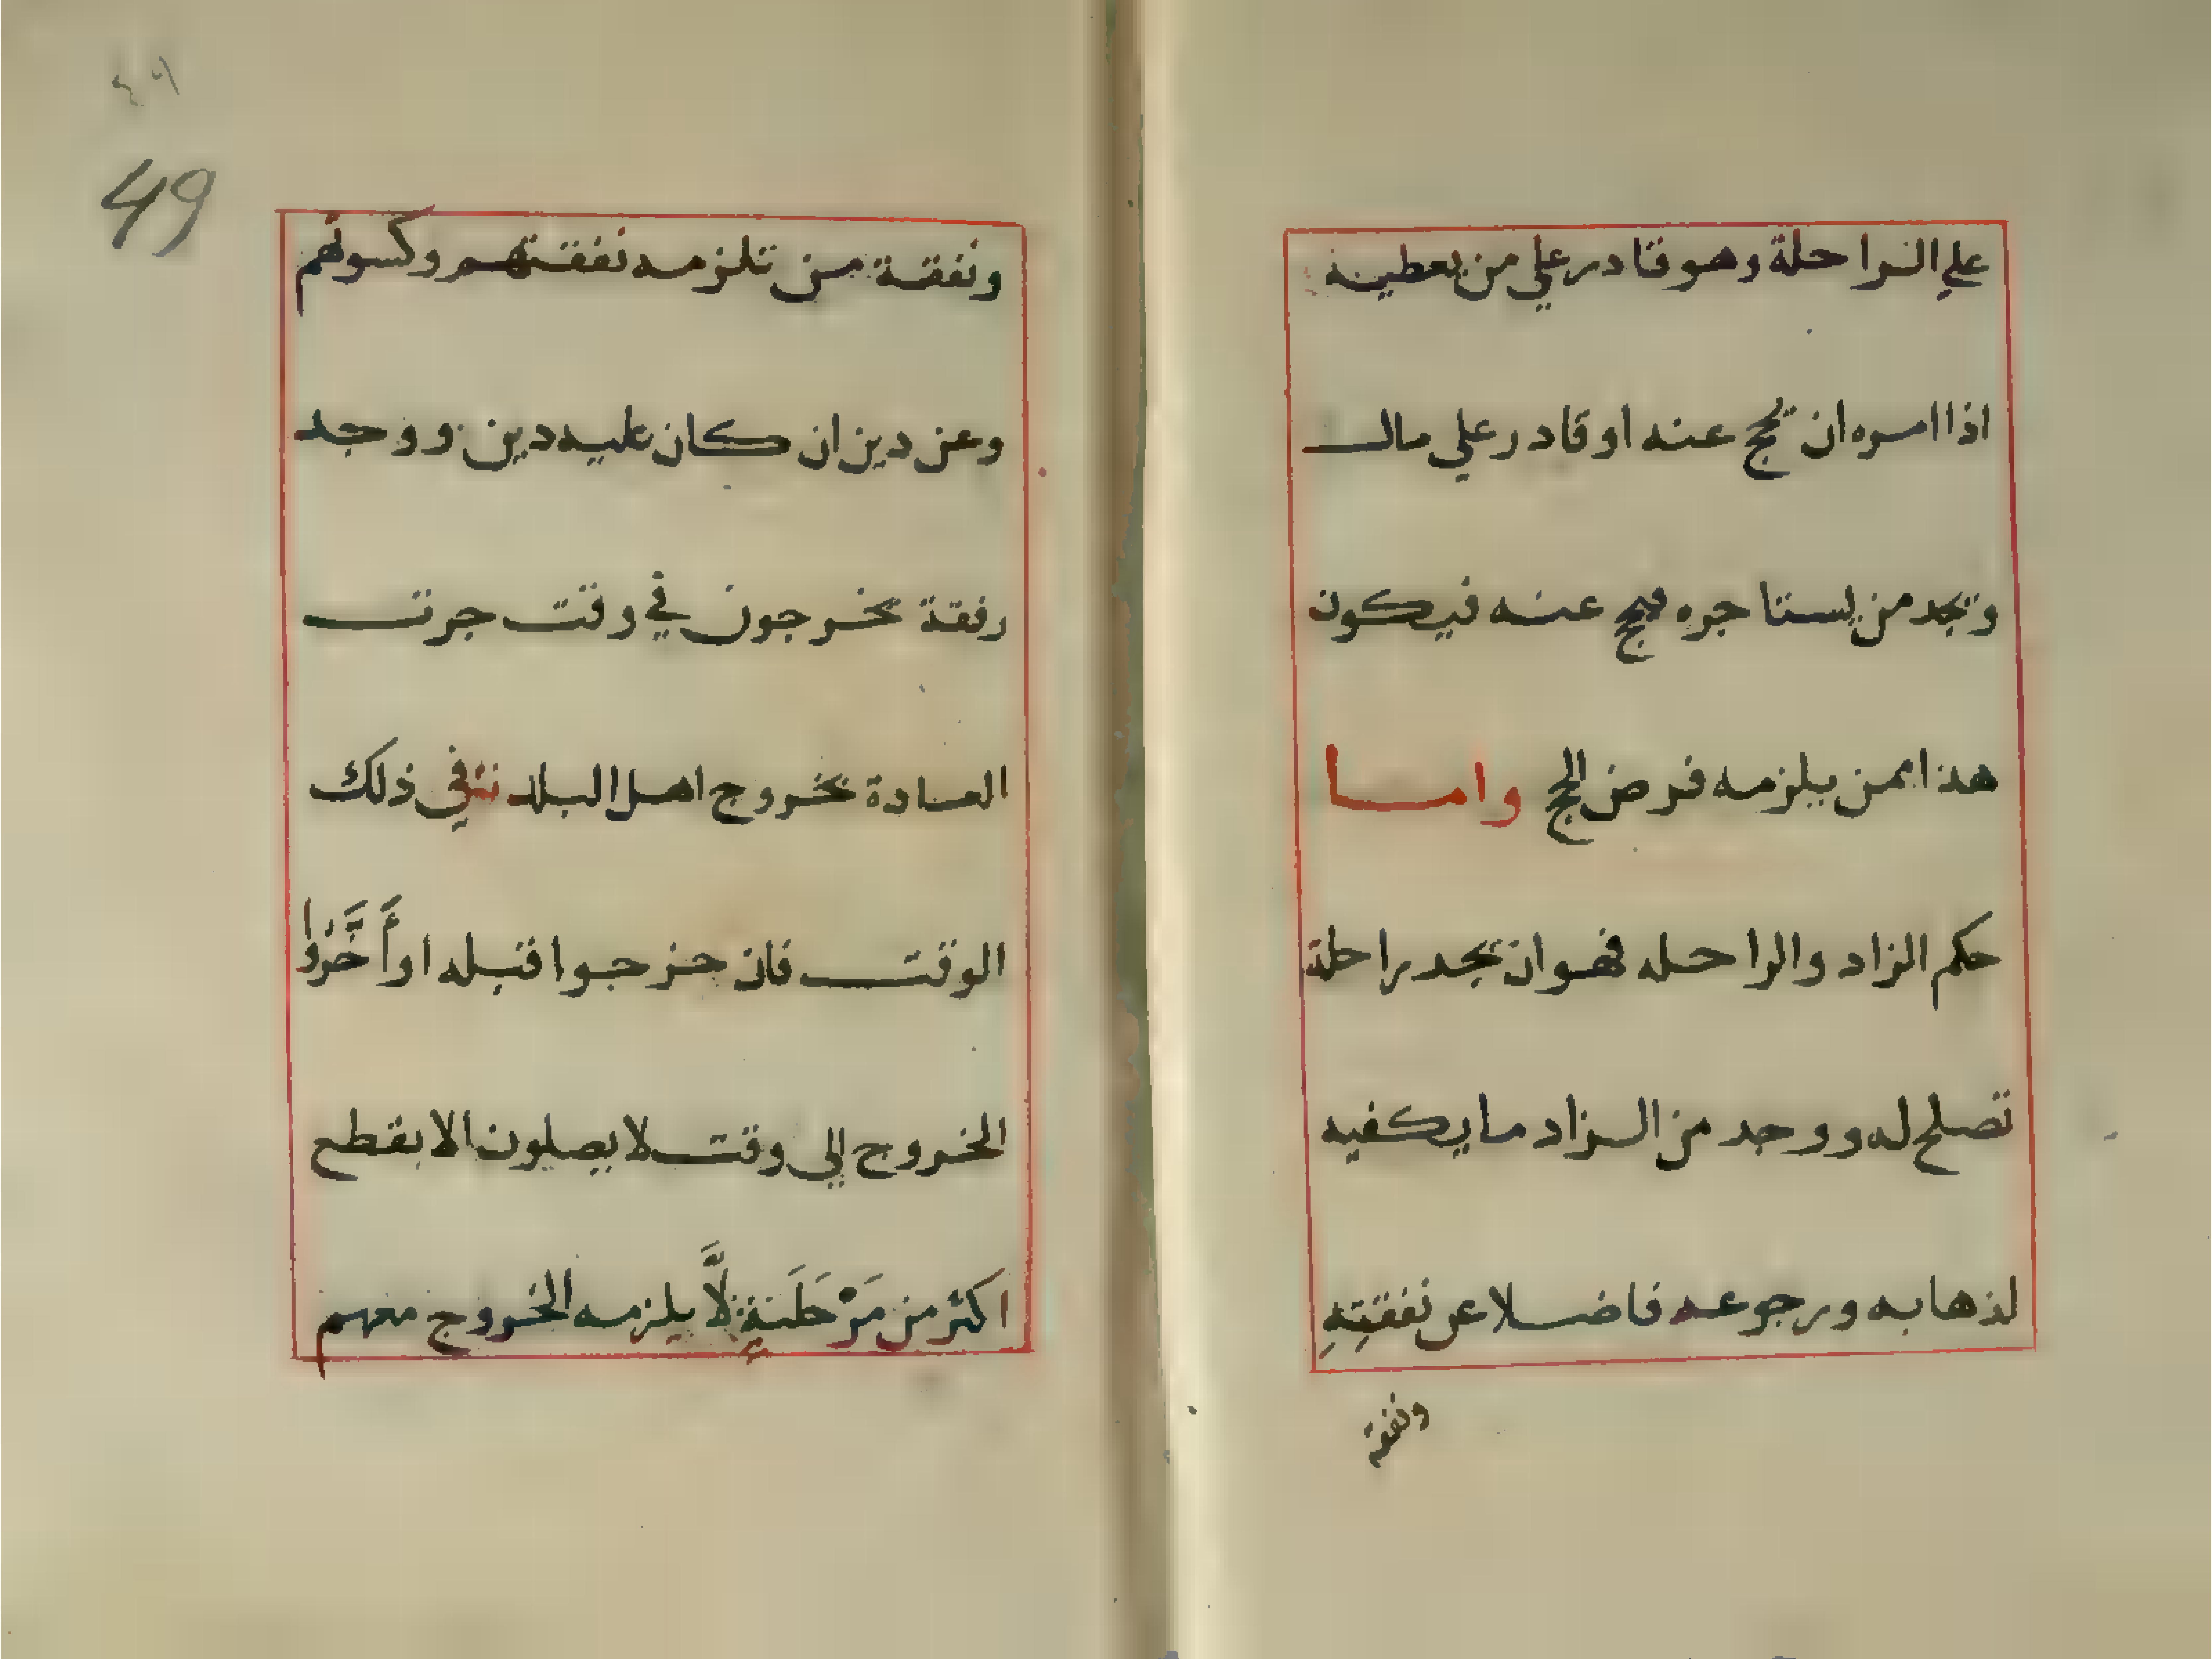 علي الراحلة وهو قادر علي من يعطيه
اذا امره ان يحج عنه او قادر علي مال
ويجد من يستاجره يحج عنه فيكون
هذا ممن يلزمه فرض الحج واما
حكم الزاد والراحله فهو ان يجد راحلة
تصلح له ووجد من الزاد ما يكفيه
لذهابه ورجوعه فاضلا عن نفقتِهِ
ونفقة
٤٩
49
ونفقة من تلزمه نفقتهم وكسوتهم
وعن دين ان كان عليه دين ووجد
رفقة يخرجون في وقت جرت
العادة بخروج اهل البلد في ذلك
الوقت فان خرجوا قبله او أَخَّروا
الخروج الي وقت لا يصلون الا بقطع
اكثر من مَرْحَلَة لاَّ يلزمه الخروج معهم